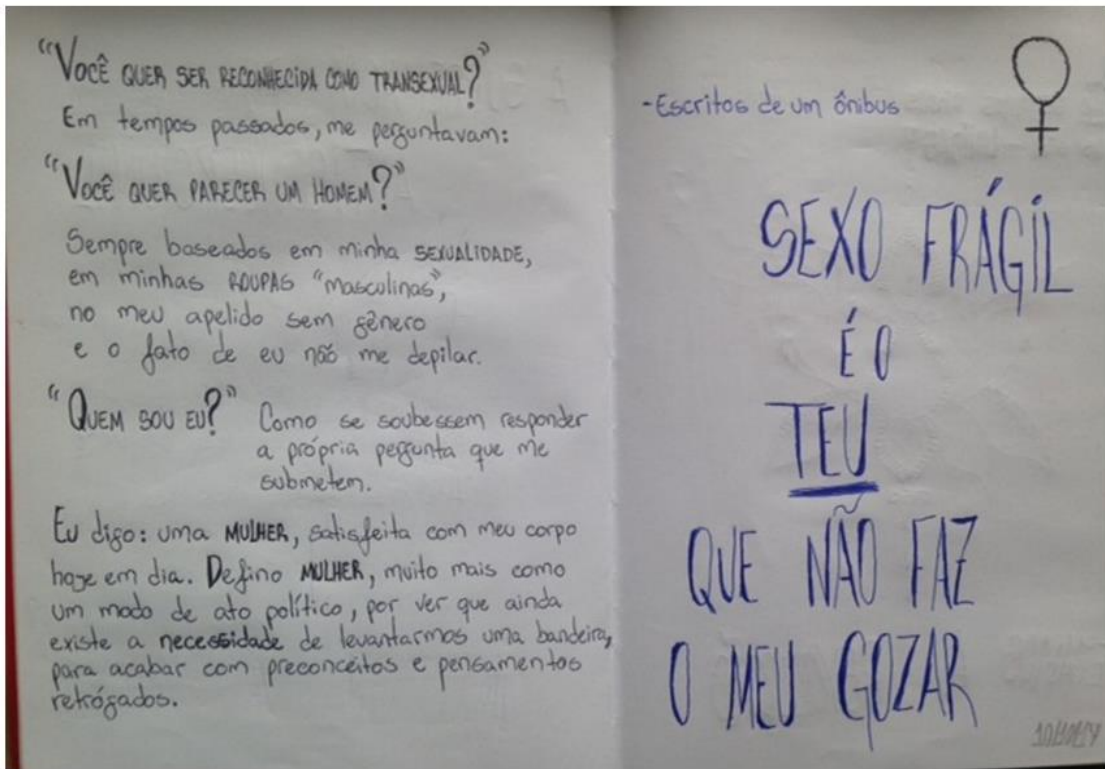 “VOCÊ QUER SER RECONHECIDA COMO TRANSEXUAL?”
Em tempos passados, me perguntavam:
“VOCÊ QUER PARECER UM HOMEM?”
Sempre baseados em minha SEXUALIDADE,
em minhas ROUPAS “masculinas”,
no meu apelido sem gênero
e o fato de eu não me depilar.
“QUEM SOU EU?” Como se soubessem responder
a própria pergunta que me
submetem.
Eu digo: uma MULHER, satisfeita com meu corpo
hoje em dia. Defino MULHER, muito mais como
um modo de ato político, por ver que ainda
existe a necessidade de levantarmos uma bandeira,
para acabar com preconceitos e pensamentos
retrógados.
-Escritos de um ônibus
SEXO FRÁGIL
É O
TEU
QUE NÃO FAZ
O MEU GOZAR